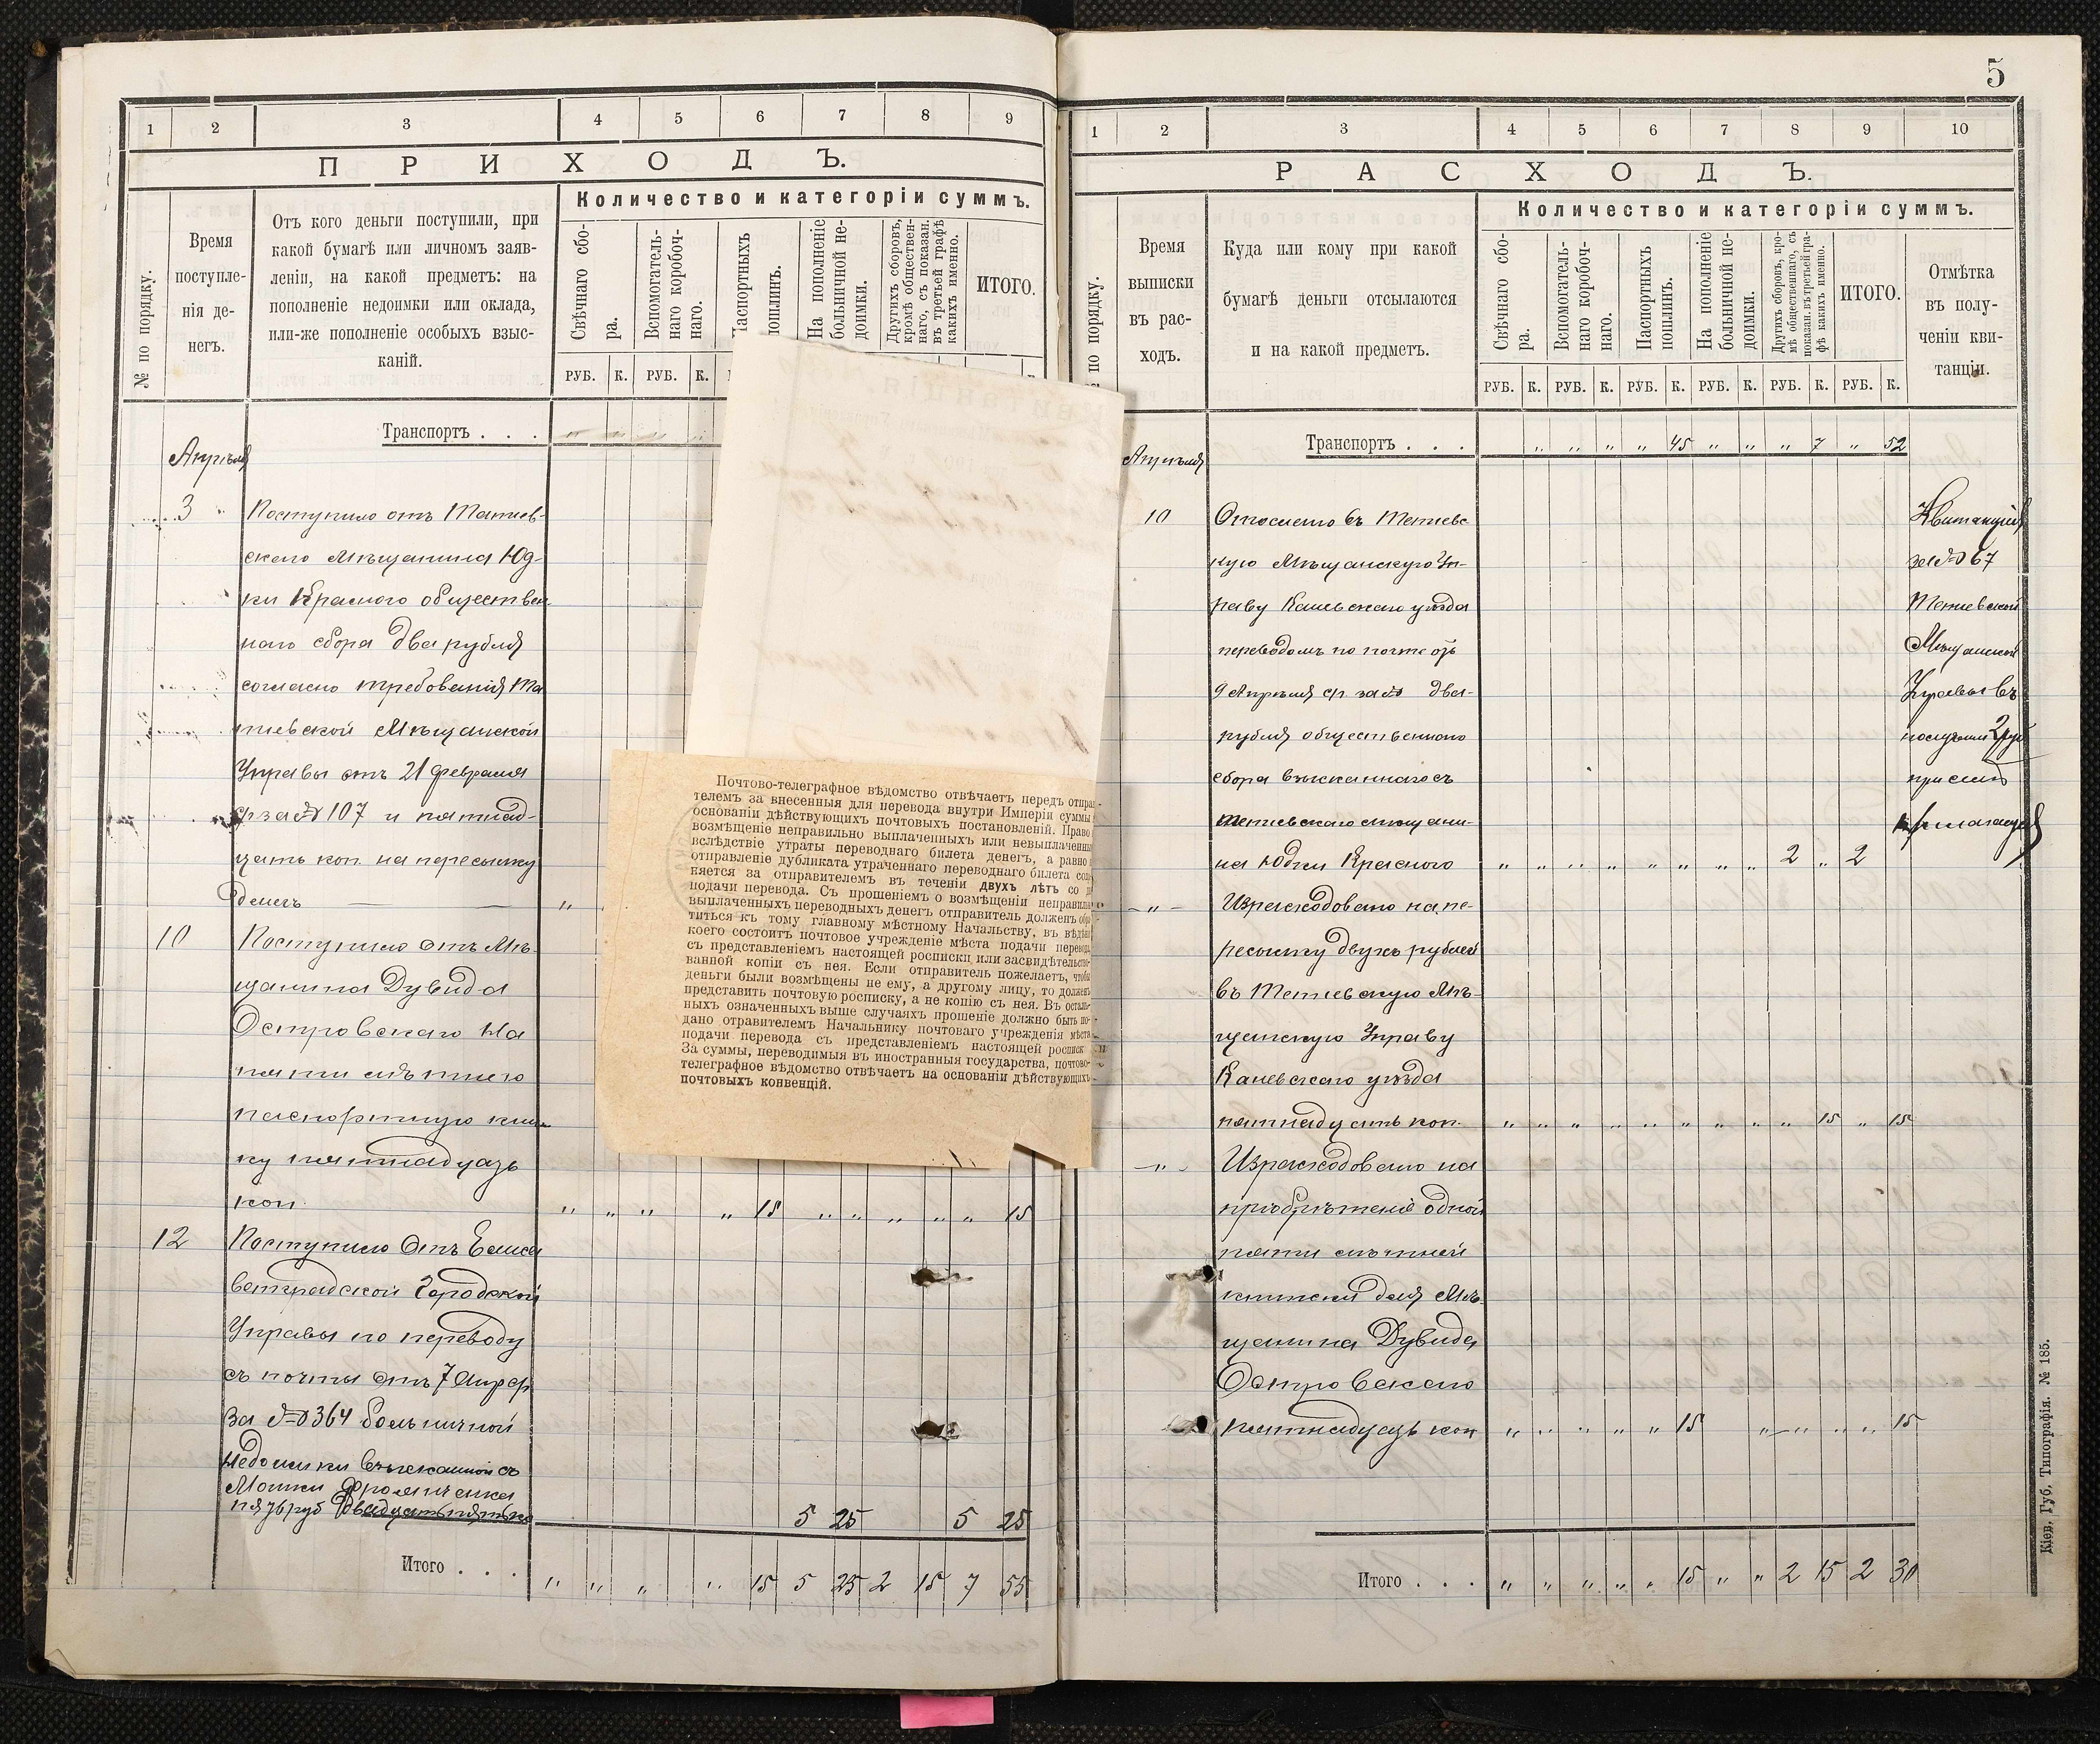 5
1 2 3 4 5 6 7 8 9
ПРИХОДЪ.
№ по порядку.
Время
поступле-
нія де-
негъ.
Отъ кого деньги поступили, при
какой бумагѣ или личномъ заяв-
леніи, на какой предметъ: на
пополненіе недоимки или оклада,
или-же пополненіе особыхъ взыс-
каній.
Количество и категоріи суммъ.
Свѣчнаго сбо-
ра.
Вспомогатель-
наго коробоч-
наго.
Паспортныхъ
пошлинъ.
На пополненіе
больничной не-
доимки.
Другихъ сборовъ,
кромѣ обществен-
наго, съ показан.
въ третьей графѣ
какихъ именно.
ИТОГО.
РУБ. К. РУБ. К.
Транспортъ . . .
Апрѣля
3 Поступило отъ Тетиев-
скаго Мѣщанина Юд-
ки Краснаго обществен
наго сбора два рубля
согласно требованія Те
тиевской Мѣщанской
Управы отъ 21 февраля
ср за № 107 и пятнад-
цать коп на пересылку
денегъ — — "
10 Поступило отъ Мѣ-
щанина Дувида
Островскаго на
пяти лѣтнюю
паспортную книж
ку пятнадцать
коп. " " " " 15 " " " " " 15
12 Поступило отъ Елиса
ветградской Городской
Управы по переводу
съ почты отъ 7 Апр ср
за № 364 больничной
недоимки взысканной съ
Мошки
пять руб двадцать пять ко 5 25 5 25
Итого . . . " " " " 15 5 25 2 15 7 55
Почтово-телеграфное вѣдомство отвѣчаетъ передъ отпра-
телемъ за внесенныя для перевода внутри Имперіи суммы
основаніи дѣйствующихъ почтовыхъ постановленій. Право
возмѣщеніе неправильно выплаченныхъ или невыплаченны
вслѣдствіе утраты переводнаго билета денегъ, а равно
отправленіе дубликата утраченнаго переводнаго билета сох
няется за отправителемъ въ теченіи двухъ лѣтъ со д
подачи перевода. Съ прошеніемъ о возмѣщеніи неправильн
выплаченныхъ переводныхъ денегъ отправитель долженъ обра
титься къ тому главному мѣстному Начальству, въ вѣдѣн
коего состоитъ почтовое учрежденіе мѣста подачи перевода
съ представленіемъ настоящей росписки или засвидѣтельство-
ванной копіи съ нея. Если отправитель пожелаетъ, чтобы
деньги были возмѣщены не ему, а другому лицу, то долженъ
представить почтовую росписку, а не копію съ нея. Въ осталь-
ныхъ означенныхъ выше случаяхъ прошеніе должно быть по-
дано отравителемъ Начальнику почтоваго учрежденія мѣста
подачи перевода съ представленіемъ настоящей росписки
За суммы, переводимыя въ иностранныя государства, почтово-
телеграфное вѣдомство отвѣчаетъ на основаніи дѣйствующихъ
почтовыхъ конвенцій.
1 2 3 4 5 6 7 8 9 10
РАСХОДЪ.
по порядку.
Время
выписки
въ рас-
ходъ.
Куда или кому при какой
бумагѣ деньги отсылаются
и на какой предметъ.
Количество и категоріи суммъ.
Свѣчнаго сбо-
ра.
Вспомогатель-
наго коробоч-
наго.
Паспортныхъ
пошлинъ.
На пополненіе
больничной не-
доимки.
Другихъ сборовъ, кро-
мѣ общественнаго, съ
показан. въ третьей гра-
фѣ какихъ именно.
ИТОГО.
Отмѣтка
въ полу-
ченіи кви-
танціи.
РУБ. К. РУБ. К. РУБ. К. РУБ. К. РУБ. К. РУБ. К.
Транспортъ . . . " " " " 45 " " " 7 " 52
Апрѣля
10 Отослано въ Тетиевс
кую Мѣщанскую Уп-
раву Каневскаго уѣзда
переводомъ по почте отъ
9 Апрѣля ср за № два-
рубля общественнаго
сбора взысканнаго съ
тетиевскаго мѣщани-
на Юдки Краснаго " " " " " " " " 2 " 2
Квитанція
за № 67
Тетиевской
Мѣщанской
Управы въ
получении 2 руб
при семъ
прилагается
— " — Израсходовано на пе-
ресылку двухъ рублей
въ Тетиевскую Мѣ-
щанскую Управу
Каневскаго уѣзда
пятнадцать коп. " " " " " " " " " 15 " 15
— " - Израсходовано на
приобрѣтеніе одной
пяти лѣтней
книжки для Мѣ-
щанина Дувида
Островскаго
пятнадцать коп " " " " " 15 " " " " 15
Итого . . . " " " " " 15 " " 2 15 2 30
Кіев. Губ. Типографія. № 185.